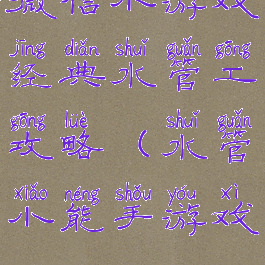 微信小游戏
jīng diǎn shuǐ guǎn gōng
经典水管工
gōng lüè shuǐ guǎn
攻略(水管
xiǎo néng shǒu yóu xì
小能手游戏